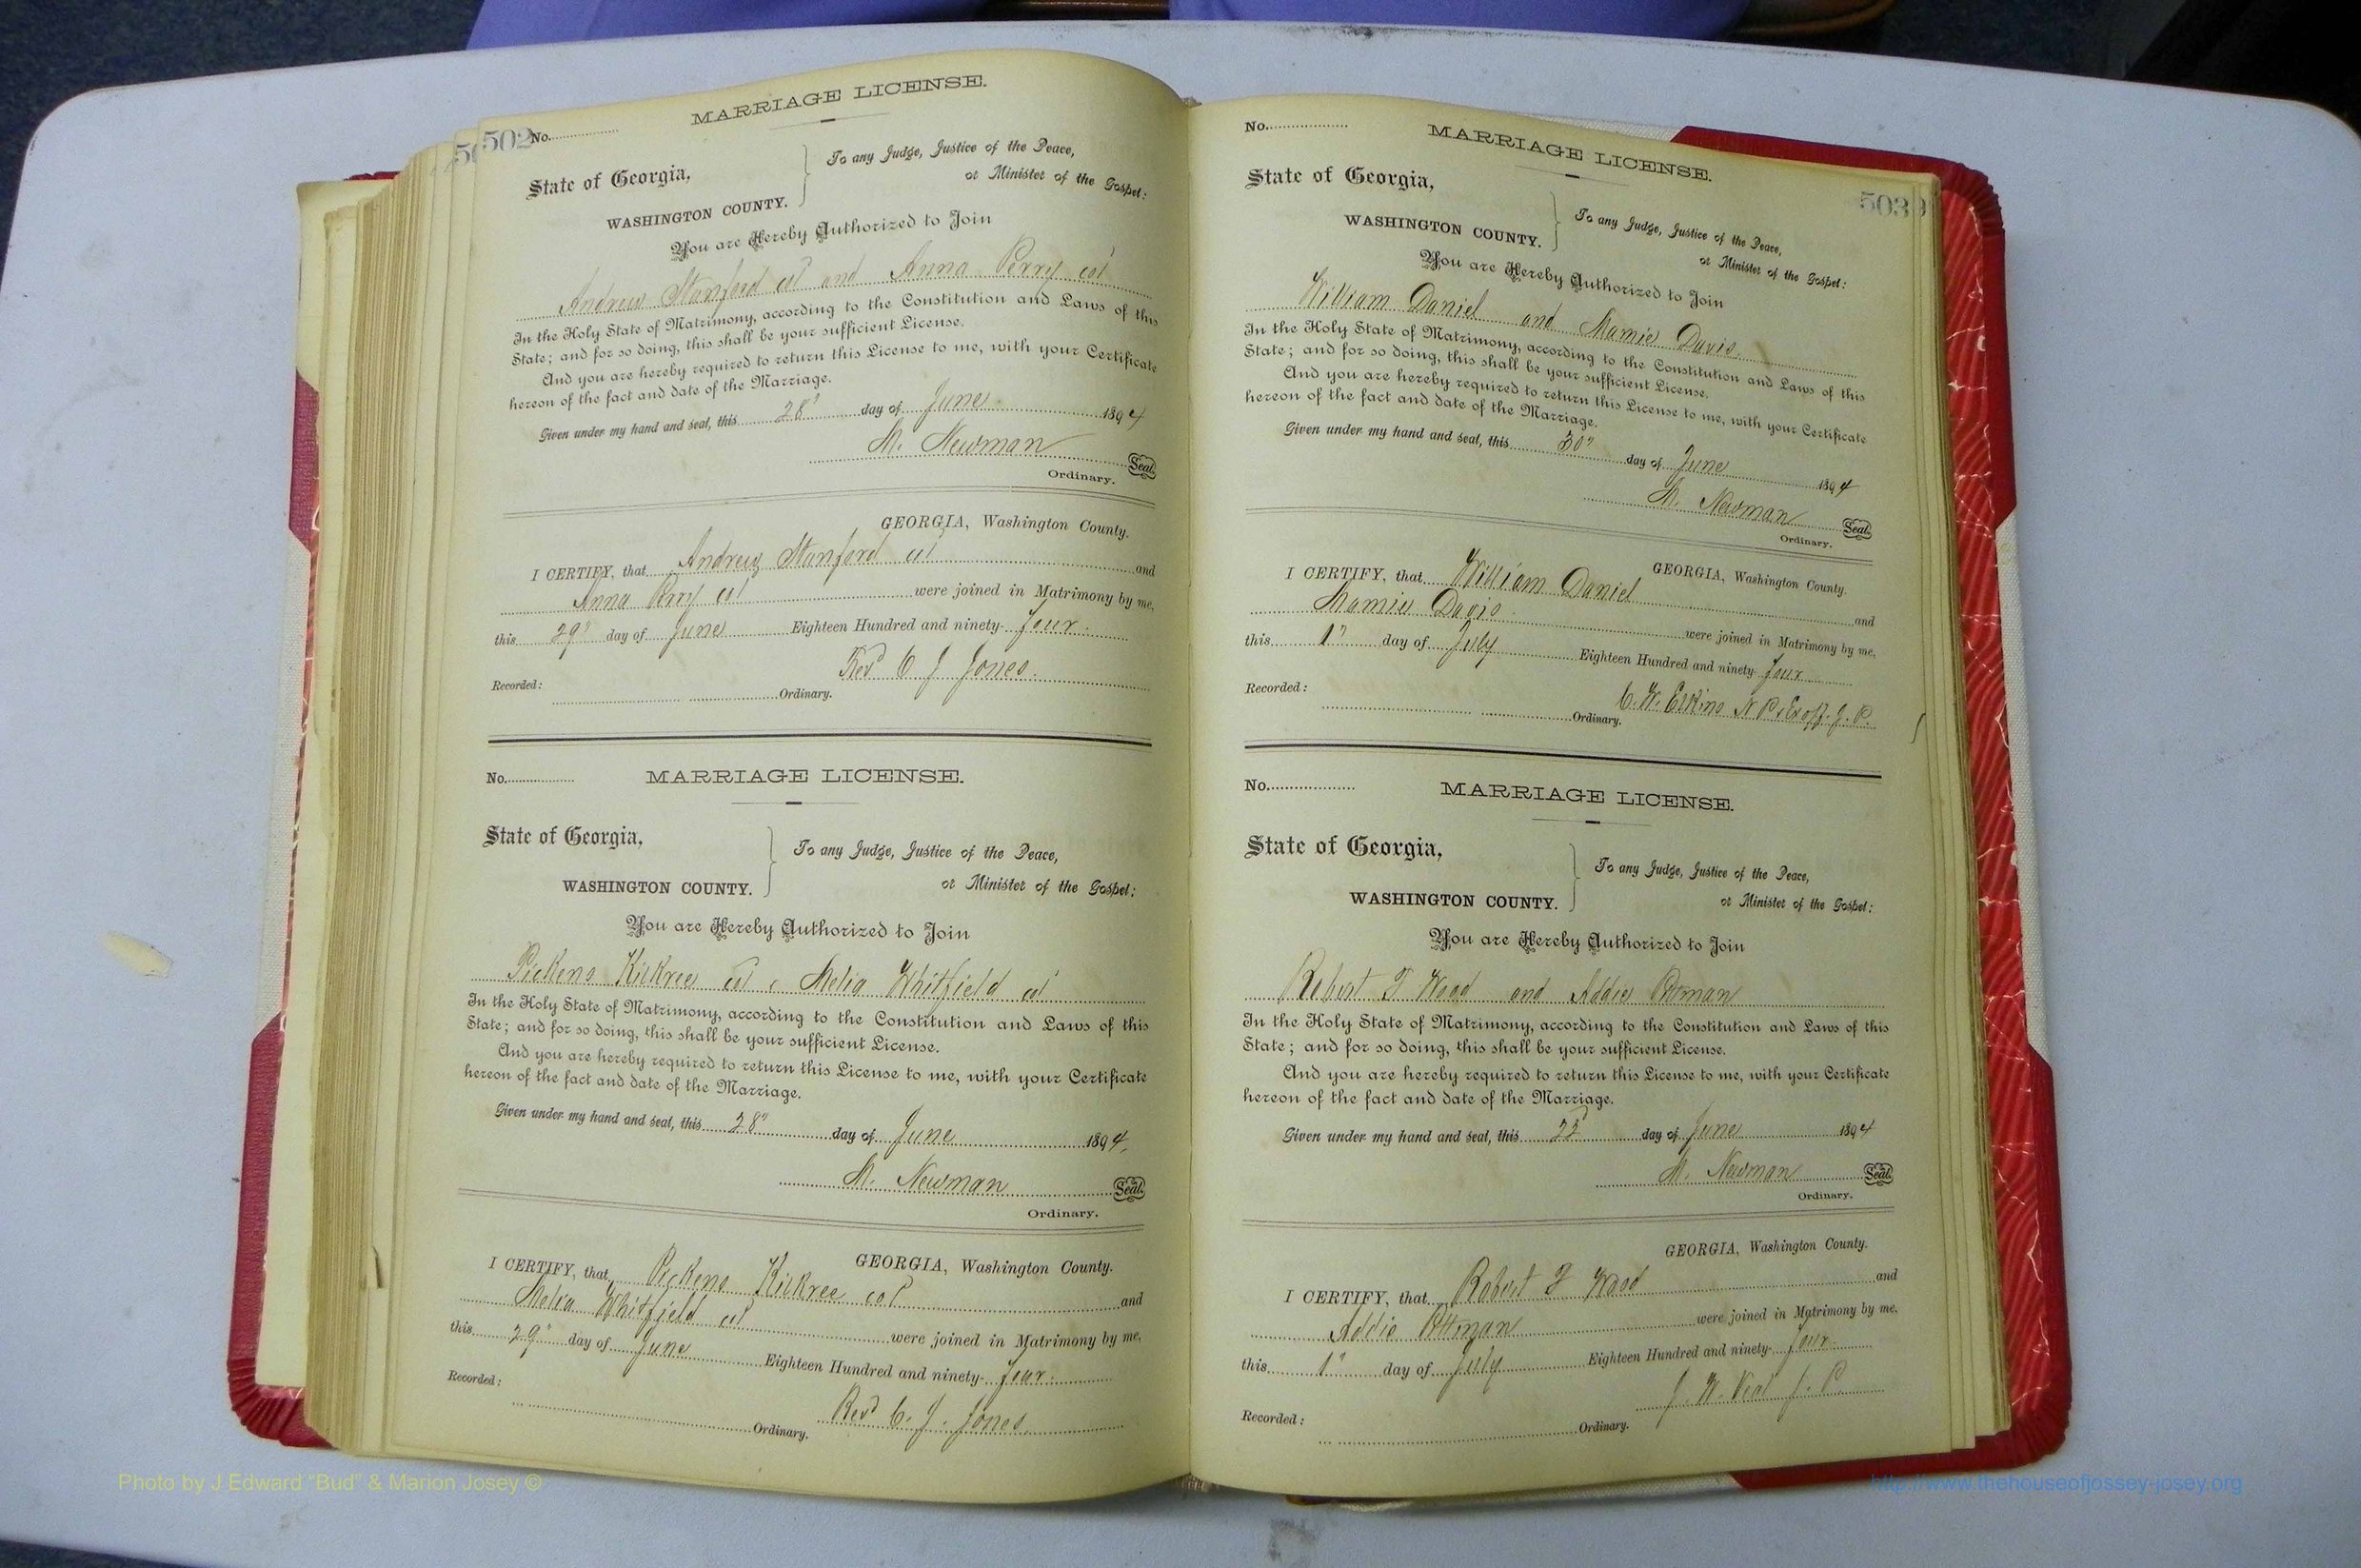 502
No.
MARRIAGE LICENSE.
State of Georgia,
WASHINGTON COUNTY.
To any Judge, Justice of the Peace,
or Minister of the Gospel:
You are Hereby Authorized to Join
Andrew Stanford col and Anna Perry col
In the Holy State of Matrimony, according to the Constitution and Laws of this
State; and for so doing, this shall be your sufficient License.
And you are hereby required to return this License to me, with your Certificate
hereon of the fact and date of the Marriage.
Given under my hand and seal, this 28" day of June 1894
M. Newman
Seal.
Ordinary.
GEORGIA, Washington County.
I CERTIFY, that Andrew Stanford col and
Anna Perry col were joined in Matrimony by me,
this 29" day of June Eighteen Hundred and ninety- four.
Revd C J Jones.
Recorded: Ordinary.
No.
MARRIAGE LICENSE.
State of Georgia,
WASHINGTON COUNTY.
To any Judge, Justice of the Peace,
or Minister of the Gospel:
You are Hereby Authorized to Join
Pickens Kilkree col & Melia Whitfield col
In the Holy State of Matrimony, according to the Constitution and Laws of this
State; and for so doing, this shall be your sufficient License.
And you are hereby required to return this License to me, with your Certificate
hereon of the fact and date of the Marriage.
Given under my hand and seal, this 28" day of June 1894.
M. Newman
Seal.
Ordinary.
GEORGIA, Washington County.
I CERTIFY, that Pickens Kilkree col and
Melia Whitfield col were joined in Matrimony by me,
this 29" day of June Eighteen Hundred and ninety- four.
Revd C. J. Jones.
Recorded: Ordinary.
No.
MARRIAGE LICENSE.
503
State of Georgia,
WASHINGTON COUNTY.
To any Judge, Justice of the Peace,
or Minister of the Gospel:
You are Hereby Authorized to Join
William Daniel and Mamie Davis.
In the Holy State of Matrimony, according to the Constitution and Laws of this
State; and for so doing, this shall be your sufficient License.
And you are hereby required to return this License to me, with your Certificate
hereon of the fact and date of the Marriage.
Given under my hand and seal, this 30" day of June 1894
M. Newman
Seal.
Ordinary.
GEORGIA, Washington County.
I CERTIFY, that William Daniel and
Mamie Davis were joined in Matrimony by me,
this 1" day of July Eighteen Hundred and ninety- four
C. W. Erkins N P & Ex off. J. P.
Recorded: Ordinary.
No.
MARRIAGE LICENSE.
State of Georgia,
WASHINGTON COUNTY.
To any Judge, Justice of the Peace,
or Minister of the Gospel:
You are Hereby Authorized to Join
Robert F Wood and Addie
In the Holy State of Matrimony, according to the Constitution and Laws of this
State; and for so doing, this shall be your sufficient License.
And you are hereby required to return this License to me, with your Certificate
hereon of the fact and date of the Marriage.
Given under my hand and seal, this day of June 1894
M. Newman
Seal.
Ordinary.
GEORGIA, Washington County.
I CERTIFY, that Robert F Wood and
Addie were joined in Matrimony by me,
this 1" day of July Eighteen Hundred and ninety- four.
J. W. Veal J. P.
Recorded: Ordinary.
Photo by J Edward "Bud" & Marion Josey ©
http://www.thehouseofjossey-josey.org